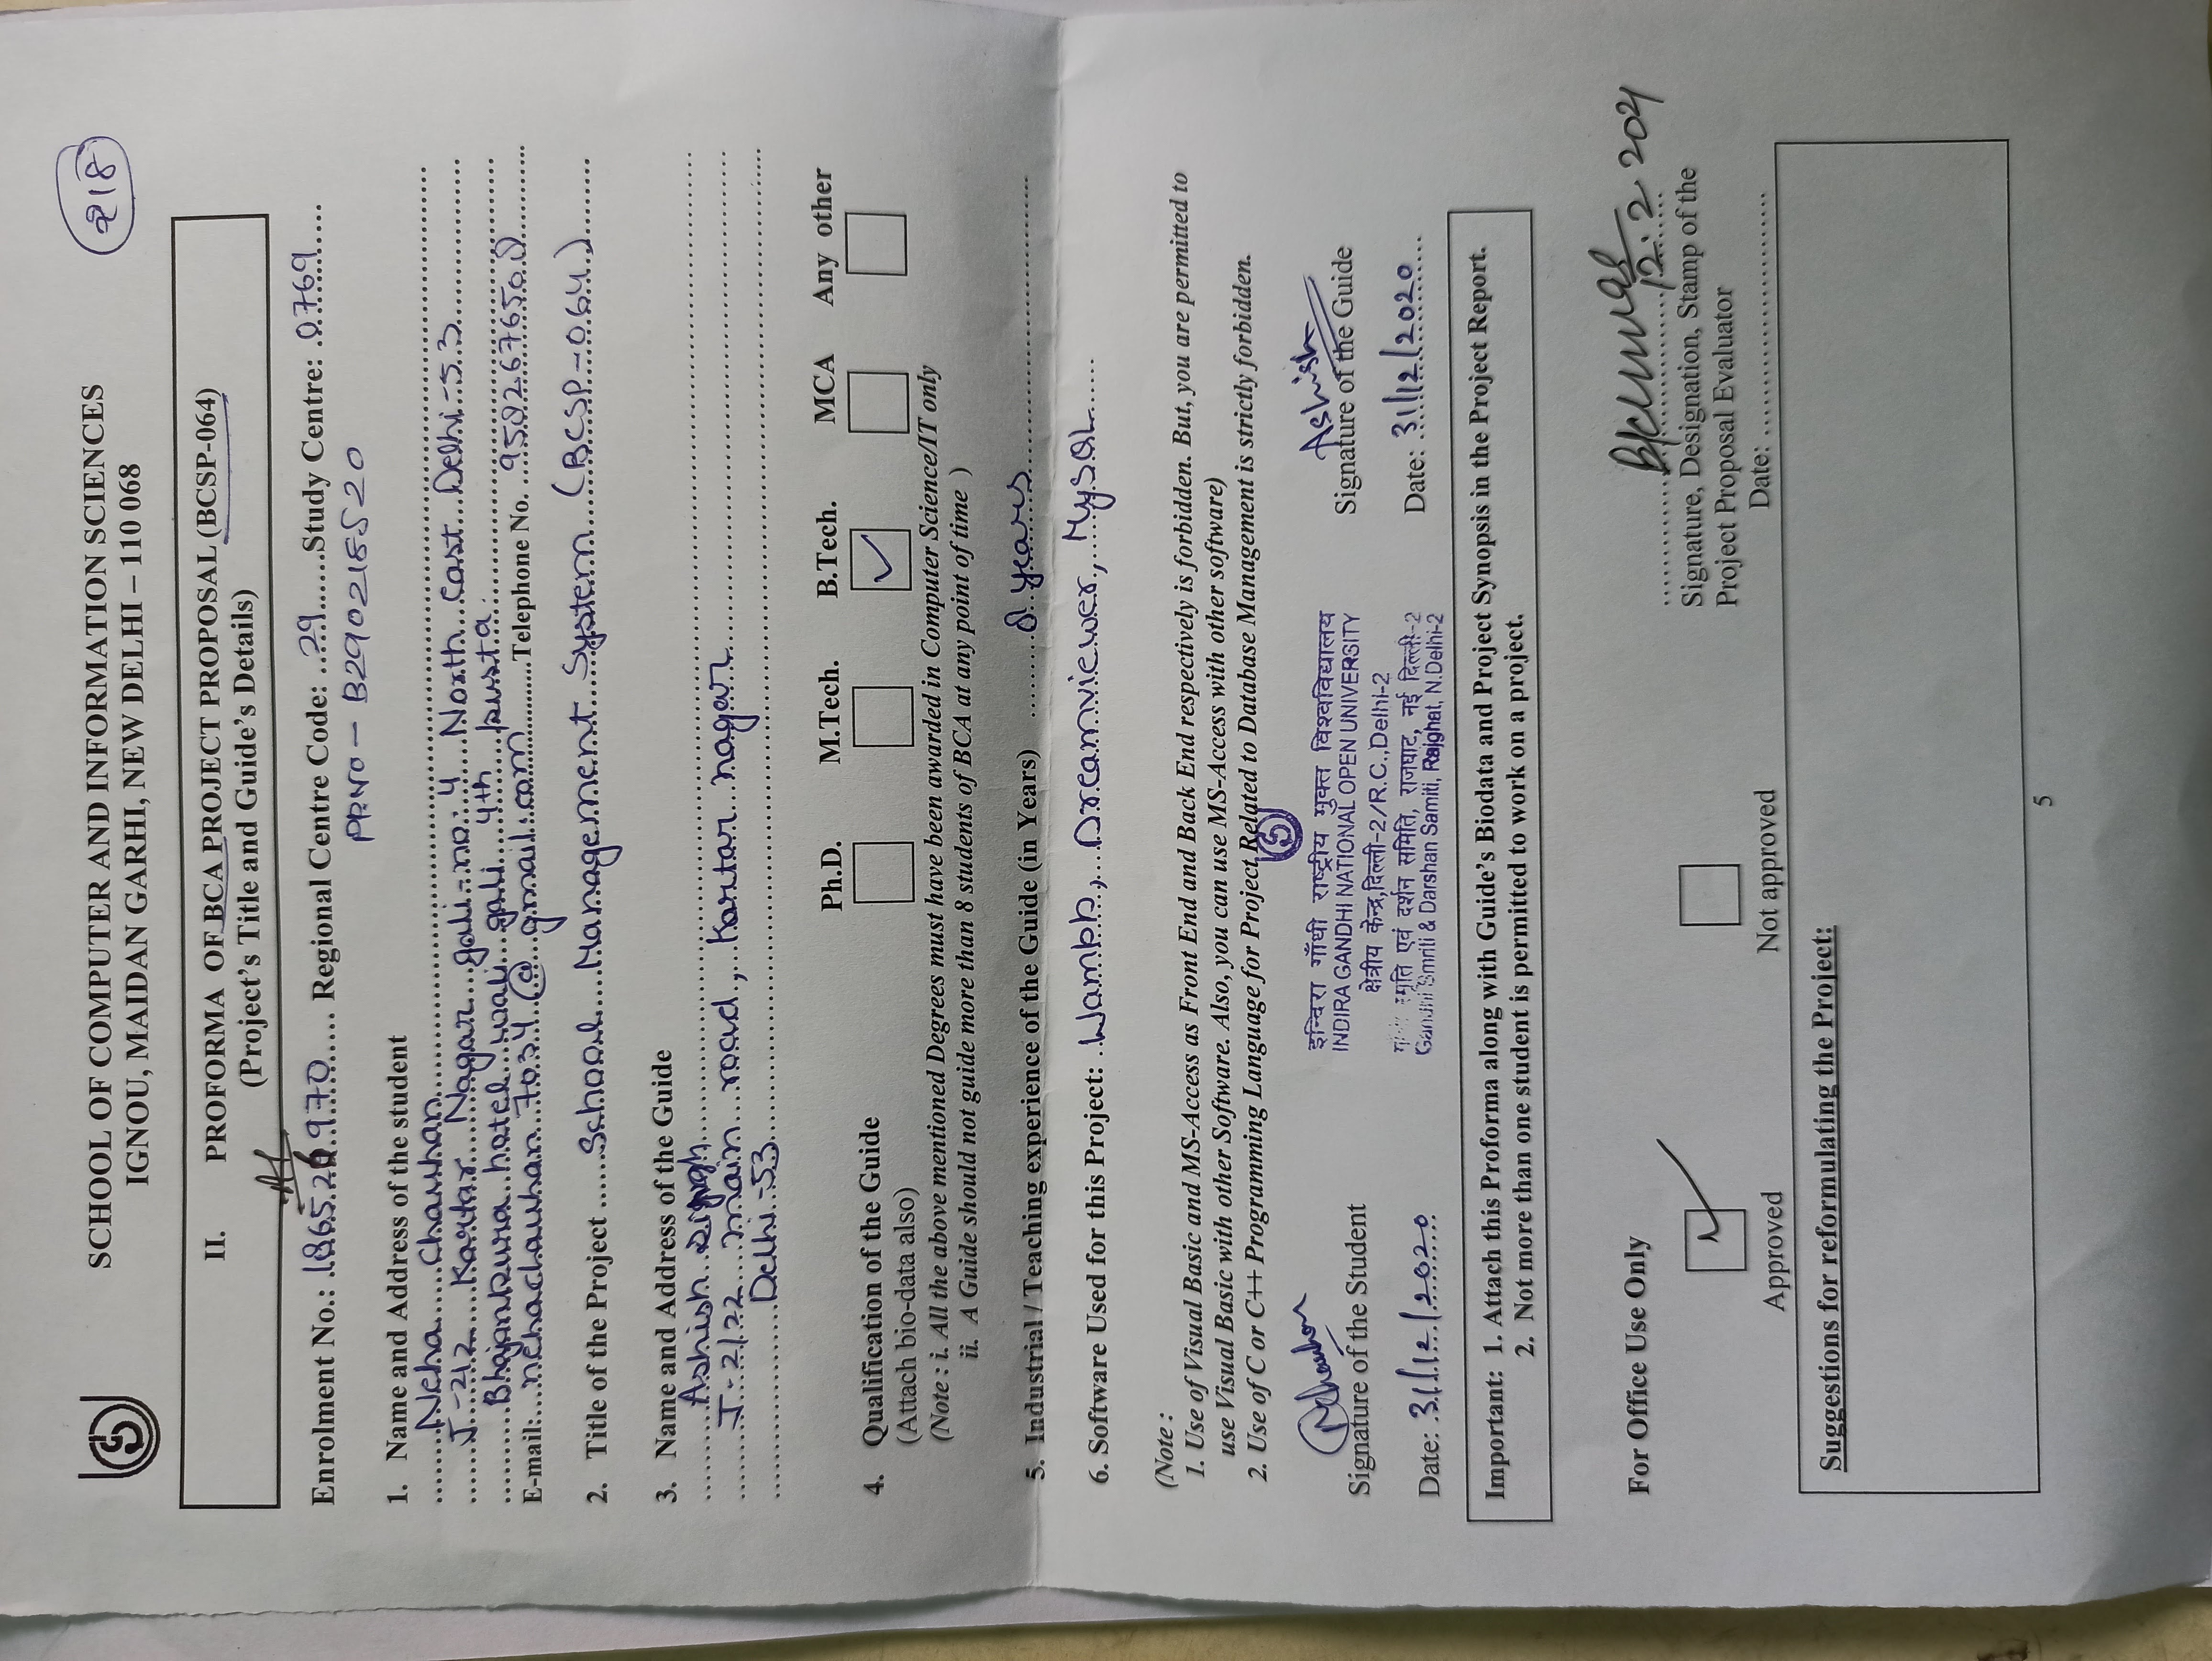 SCHOOL OF COMPUTER AND INFORMATION SCIENCES
IGNOU, MAIDAN GARHI, NEW DELHI – 110 068
218
II. PROFORMA OF BCA PROJECT PROPOSAL (BCSP-064)
(Project's Title and Guide's Details)
Enrolment No.: 186526970 Regional Centre Code: 29 Study Centre: 0769
PRNO - B290218520
1. Name and Address of the student
Neha Chauhan
J-212 Kartar Nagar gali-no:4 North East Delhi-53
Bhajanpura hotel wali gali 4th pusta
E-mail: nehachauhan7034@gmail.com Telephone No. 9582676508
2. Title of the Project School Management System (BCSP-064)
3. Name and Address of the Guide
Ashish Singh
J-2/22 main road, Kartar nagar
Delhi-53
Ph.D. M.Tech. B.Tech. MCA Any other
4. Qualification of the Guide
(Attach bio-data also)
(Note : i. All the above mentioned Degrees must have been awarded in Computer Science/IT only
ii. A Guide should not guide more than 8 students of BCA at any point of time )
5. Industrial / Teaching experience of the Guide (in Years) 8 years
6. Software Used for this Project: Wampp, Dreamviewer, MySQL
(Note :
1. Use of Visual Basic and MS-Access as Front End and Back End respectively is forbidden. But, you are permitted to
use Visual Basic with other Software. Also, you can use MS-Access with other software)
2. Use of C or C++ Programming Language for Project Related to Database Management is strictly forbidden.
Nchauhan
Signature of the Student
Date: 31/12/2020
इन्दिरा गाँधी राष्ट्रीय मुक्त विश्वविद्यालय
INDIRA GANDHI NATIONAL OPEN UNIVERSITY
क्षेत्रीय केन्द्र,दिल्ली-2/R.C.,Delhi-2
स्मृति एवं दर्शन समिति, राजघाट, नई दिल्ली-2
Gandhi Smriti & Darshan Samiti, Rajghat, N.Delhi-2
Ashish
Signature of the Guide
Date: 31/12/2020
Important: 1. Attach this Proforma along with Guide's Biodata and Project Synopsis in the Project Report.
2. Not more than one student is permitted to work on a project.
For Office Use Only
12.2.2021
Approved
Not approved
Signature, Designation, Stamp of the
Project Proposal Evaluator
Date:
Suggestions for reformulating the Project:
5